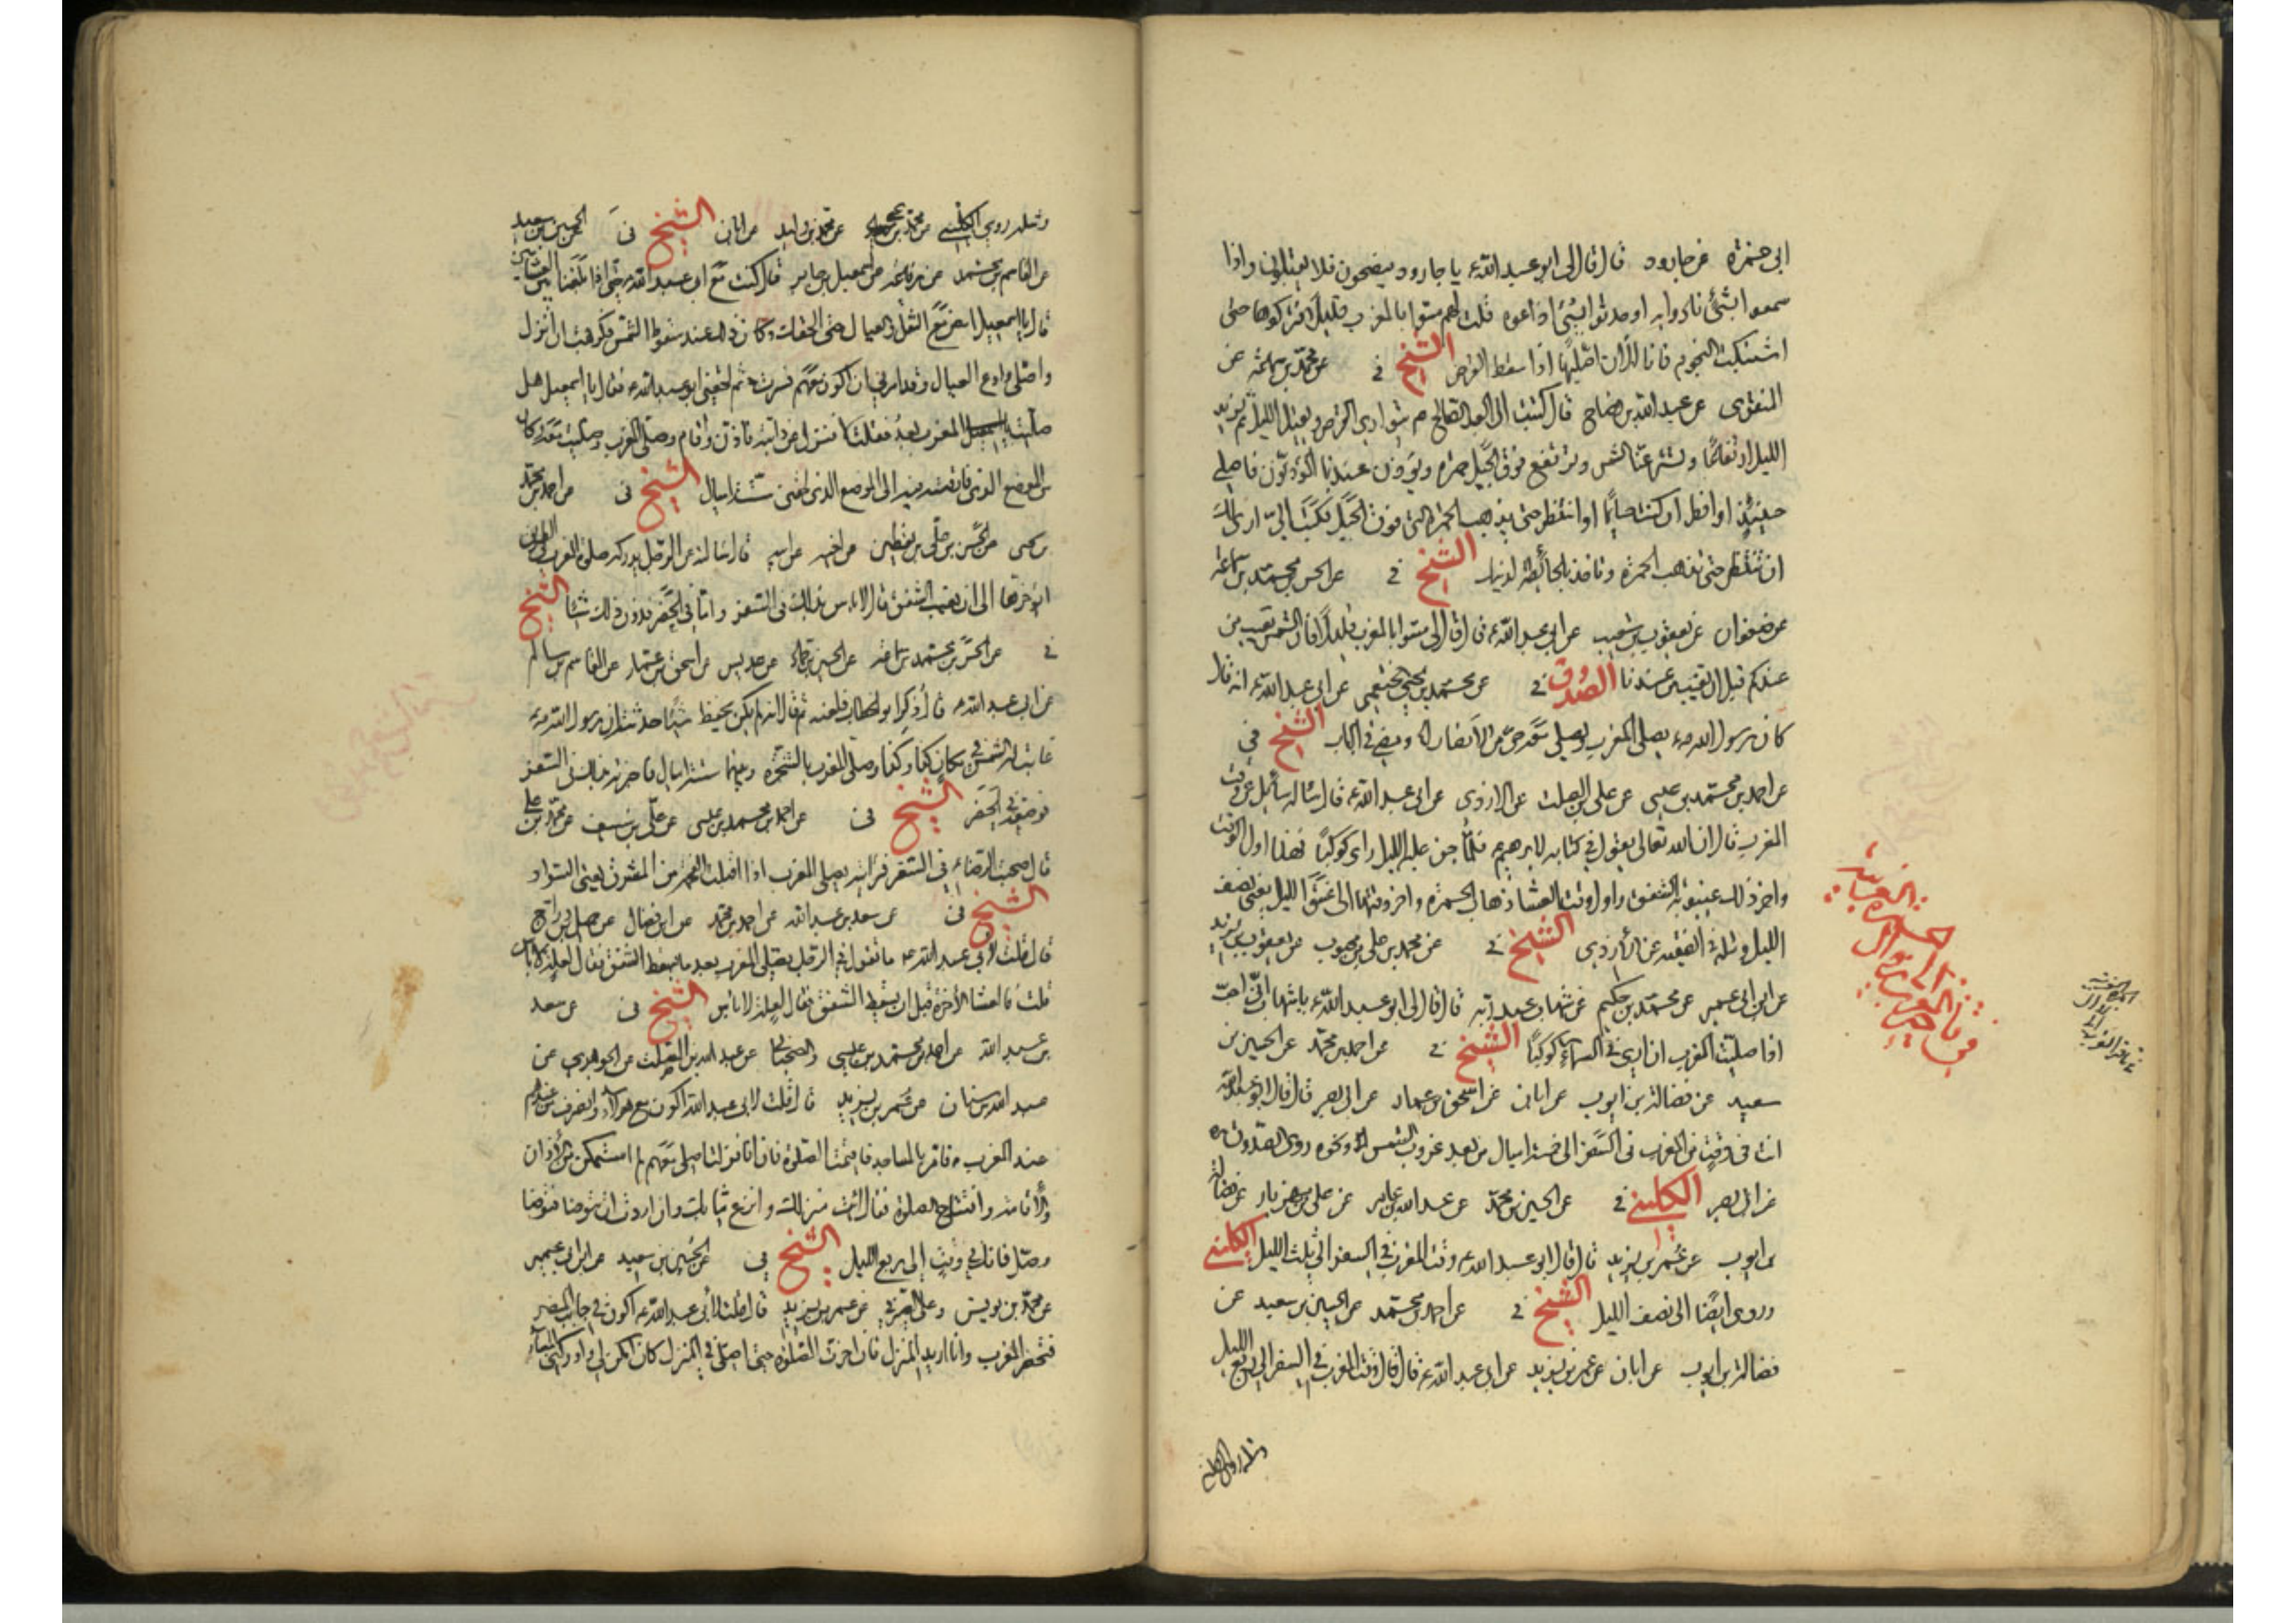 ابي حمزة عن جارود قال قال لي ابو عبد الله ع يا جارود ينصحون فلا يقبلون واذا
سمعوا بشئ نادوا به او حدثوا بشئ اذاعوه قلت لهم مسوا بالمغرب قليلا فتركوها حتى
اشتبكت النجوم فانا الآن اصليها اذا سقط القرص الشيخ في عن محمد بن سماعة عن
المنقري عن عبد الله بن وضاح قال كتبت الى العبد الصالح ع يتوارى القرص ويقبل الليل ثم يزيد
الليل ارتفاعا وتستتر عنا الشمس وترتفع فوق الجبل حمرة ويؤذن عندنا المؤذنون فاصلي
حينئذ او افطر ان كنت صائما او انتظر حتى يذهب الحمرة التي فوق الجبل فكتب الي ارى لك
ان تنتظر حتى تذهب الحمرة وتاخذ بالحائطة لدينك الشيخ في عن الحسن بن محمد بن سماعة
عن صفوان عن يعقوب بن شعيب عن ابي عبد الله ع قال قال لي مسوا بالمغرب قليلا فان الشمس تغيب من
عندكم قبل ان تغيب من عندنا الصدوق في عن محمد بن يحيى الخثعمي عن ابي عبد الله ع انه قال
كان رسول الله ص يصلي المغرب ويصلي معه حي من الانصار ومضى في الباب الشيخ في
عن احمد بن محمد بن عيسى عن علي بن الصلت عن الازدي عن ابي عبد الله ع قال ساله سائل عن وقت
المغرب قال ان الله تعالى يقول في كتابه لابرهيم ع فلما جن عليه الليل راى كوكبا فهذا اول الوقت
واخر ذلك غيبوبة الشفق واول وقت العشاء ذهاب الحمرة واخر وقتها الى غسق الليل يعني نصف
الليل ومثله في الفقيه عن الازدي الشيخ في عن محمد بن علي بن محبوب عن يعقوب بن يزيد
عن ابن ابي عمير عن محمد بن حكيم عن شهاب بن عبد ربه قال قال لي ابو عبد الله ع يا شهاب اني احب
اذا صليت المغرب ان ارى في السماء كوكبا الشيخ في عن احمد بن محمد عن الحسين بن
سعيد عن فضالة بن ايوب عن ابان عن اسحق بن عمار عن ابي بصير قال قال ابو عبد الله ع
انت في وقت من المغرب في السفر الى خمسة اميال من بعد غروب الشمس ونحوه روى الصدوق ره
عن ابي بصير الكليني في عن الحسين بن محمد عن عبد الله بن عامر عن علي بن مهزيار عن فضالة
بن ايوب عن عمر بن يزيد قال قال ابو عبد الله ع وقت المغرب في السفر الى ثلث الليل الكليني
وروى ايضا الى نصف الليل الشيخ في عن احمد بن محمد عن الحسين بن سعيد عن
فضالة بن ايوب عن ابان عن عمر بن يزيد عن ابي عبد الله ع قال قال وقت المغرب في السفر الى ربع الليل
ومثله روى الكليني
ومثله روى الكليني عن محمد بن يحيى عن محمد بن عن ابان الشيخ في الحسين بن سعيد
عن القاسم بن محمد عن رفاعة عن اسمعيل بن جابر قال كنت مع ابي عبد الله ع حتى اذا بلغنا بين العشائين
قال يا اسمعيل امض مع الثقل والعيال حتى الحقك وكان ذلك عند سقوط الشمس فكرهت ان انزل
واصلي وادع العيال وقد امرني ان اكون معهم فسرت ثم لحقني ابو عبد الله ع فقال يا اسمعيل هل
صليت المغرب بعد فقلت لا فنزل عن دابته فاذن واقام وصلى المغرب وصليت معه وكان
من الموضع الذي فارقته فيه الى الموضع الذي لحقني ستة اميال الشيخ في عن احمد بن محمد
بن عيسى عن الحسن بن علي بن يقطين عن اخيه عن ابيه قال سالته عن الرجل يدركه صلوة المغرب في الطريق
ايؤخرها الى ان يغيب الشفق قال لا باس بذلك في السفر واما في الحضر فدون ذلك شيئا الشيخ
في عن الحسن بن محمد بن سماعة عن الحسين بن حماد عن عديس عن اسحق بن عمار عن القاسم بن سالم
عن ابي عبد الله ع قال ذكر ابو الخطاب فلعنه ثم قال انه لم يكن يحفظ شيئا حدثته ان رسول الله ص
غابت له الشمس في مكان كذا وكذا وصلى المغرب بالشجرة وبينهما ستة اميال فاخبرته بذلك في السفر
فوضعه في الحضر الشيخ في عن احمد بن محمد بن عيسى عن علي بن سيف عن محمد بن علي
قال صحبت الرضا ع في السفر فرأيته يصلي المغرب اذا اقبلت الفحمة من المشرق يعني السواد
الشيخ في عن سعد بن عبد الله عن احمد بن محمد عن ابن فضال عن جميل بن دراج
قال قلت لابي عبد الله ع ما تقول في الرجل يصلي المغرب بعد ما يسقط الشفق فقال لعلة لا باس
قلت فالعشاء الآخرة قبل ان يسقط الشفق فقال لعلة لا باس الشيخ في عن سعد
بن عبد الله عن احمد بن محمد بن عيسى عن عبد الله بن الصلت عن
عبد الله بن سنان عن عمر بن يزيد قال قلت لابي عبد الله اكون مع هؤلاء وانصرف من عندهم
عند المغرب فامر بالمساجد فاقيمت الصلوة فان انا نزلت اصلي معهم لم استمكن من الاذان
والاقامة وافتتاح الصلوة فقال ائت منزلك وانزع ثيابك وان اردت ان تتوضا فتوضا
وصل فانك في وقت الى ربع الليل الشيخ في عن الحسين بن سعيد عن ابن ابي عمير
عن محمد بن يونس وعلي الصيرفي عن عمر بن يزيد قال قلت لابي عبد الله ع اكون في جانب المصر
فتحضر المغرب وانا اريد المنزل فان اخرت الصلوة حتى اصلي في المنزل كان امكن لي وادركني المساء